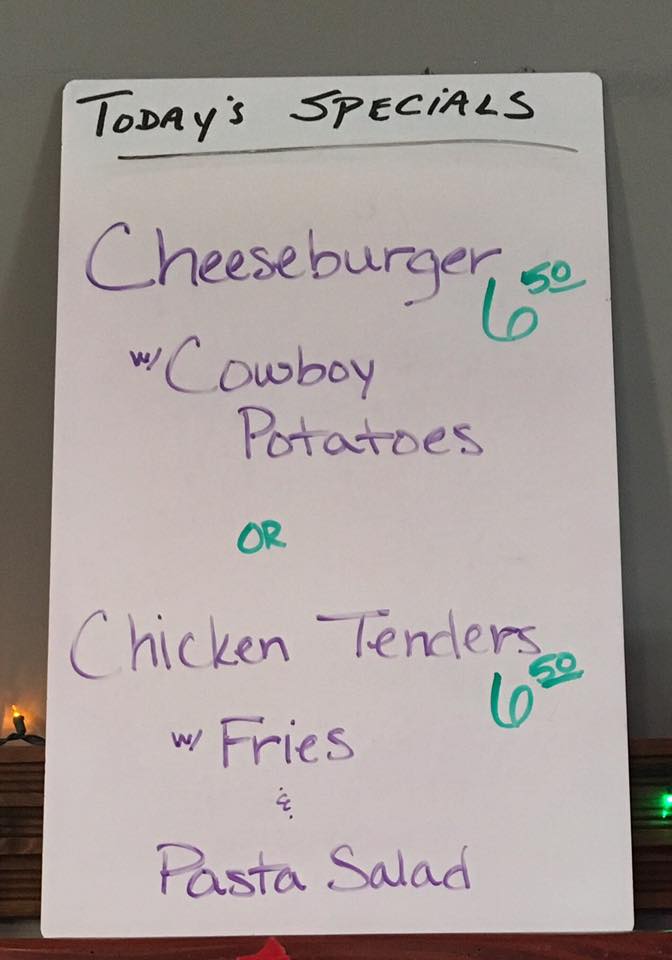 TODAY'S SPECIALS
Cheeseburger 6 50
w/ Cowboy
Potatoes
OR
Chicken Tenders 6 50
w/ Fries
&
Pasta Salad